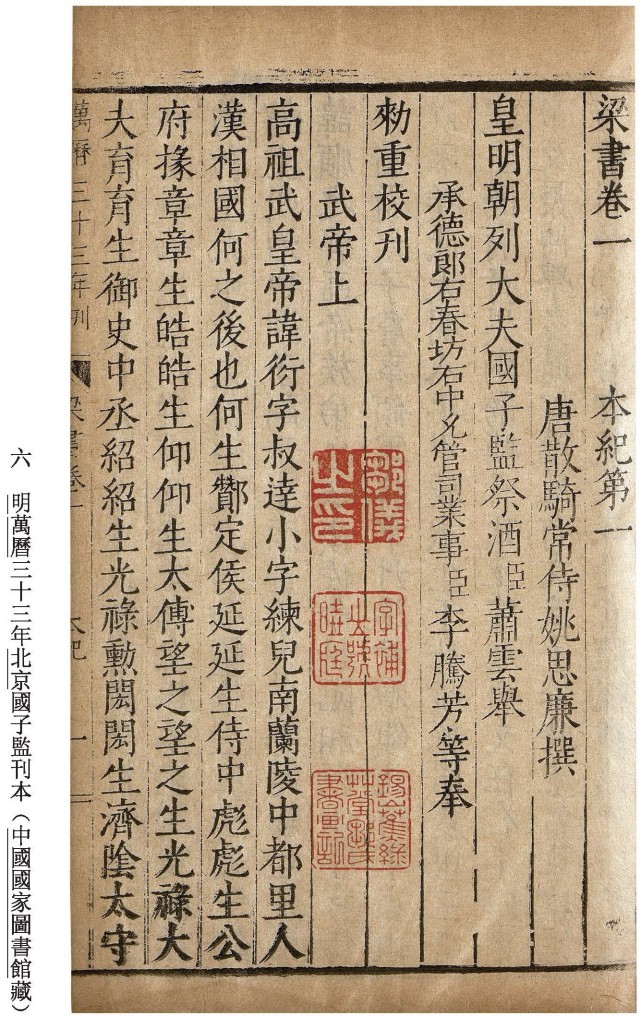 梁書卷一　　　　本紀第一
唐散騎常侍姚思廉撰
皇明朝列大夫國子監祭酒臣蕭雲舉
承德郎右春坊右中允管司業事臣李騰芳等奉
勑重校刊
武帝上
鄒儀之印
錫山蕉綠草堂鄒氏書畫記
高祖武皇帝諱衍字叔達小字練兒南蘭陵中都里人
漢相國何之後也何生酇定侯延延生侍中彪彪生公
府掾章章生皓皓生仰仰生太傅望之望之生光祿大
夫育育生御史中丞紹紹生光祿勳閎閎生濟陰太守
萬曆三十三年刊　梁書卷一　本紀　一
六　明萬曆三十三年北京國子監刊本（中國國家圖書館藏）